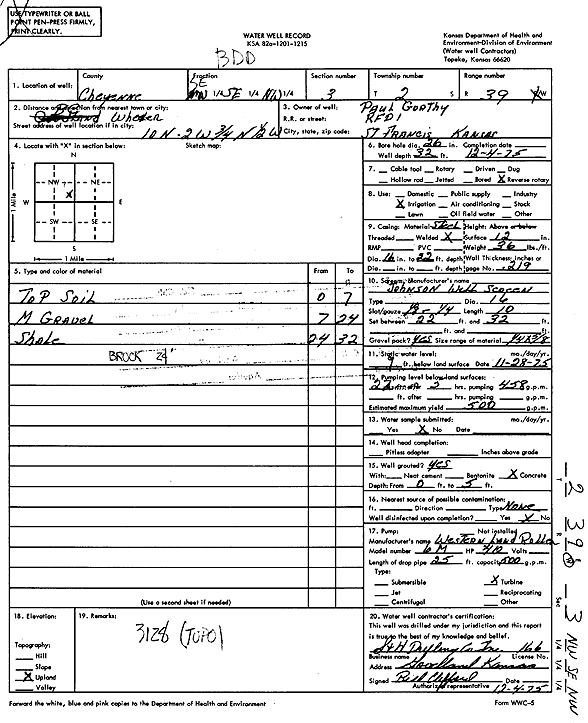 USE TYPEWRITER OR BALL
POINT PEN-PRESS FIRMLY,
PRINT CLEARLY.
WATER WELL RECORD
KSA 82a-1201-1215
Kansas Department of Health and
Environment-Division of Environment
(Water well Contractors)
Topeka, Kansas 66620
BDD
1. Location of well:
County
Cheyenne
Fraction
SE
1/4 SE 1/4 NW 1/4
Section number
3
Township number
T 2 S
Range number
R 39 W
2. Distance and direction from nearest town or city:
Wheeler
Street address of well location if in city:
10 N - 2 W 3/4 N 1/2 W
3. Owner of well: Paul Gorthy
R.R. or street: RFD1
City, state, zip code: ST Francis Kansas
4. Locate with "X" in section below:
Sketch map:
N
NW NE
W X E
SW SE
S
1 Mile
1 Mile
6. Bore hole dia. 26 in. Completion date
Well depth 32 ft. 12-4-75
7. Cable tool Rotary Driven Dug
Hollow rod Jetted Bored X Reverse rotary
8. Use: Domestic Public supply Industry
X Irrigation Air conditioning Stock
Lawn Oil field water Other
9. Casing: Material Steel Height: Above or below
Threaded Welded X Surface 12 in.
RMP PVC Weight 36 lbs./ft.
Dia. 16 in. to 22 ft. depth Wall Thickness: inches or
Dia. in. to ft. depth gage No. .219
5. Type and color of material From To
Top Soil 0 7
M Gravel 7 24
Shale 24 32
BROCK 24'
10. Screen: Manufacturer's name
Johnson Well Screen
Type Dia. 16
Slot/gauze Length 10
Set between 22 ft. and 32 ft.
ft. and ft.
Gravel pack? yes Size range of material 1/4 x 3/8
11. Static water level: mo./day/yr.
9 ft. below land surface Date 11-28-75
12. Pumping level below land surfaces:
ft. after 2 hrs. pumping 458 g.p.m.
ft. after hrs. pumping g.p.m.
Estimated maximum yield 500 g.p.m.
13. Water sample submitted: mo./day/yr.
Yes X No Date
14. Well head completion:
Pitless adapter Inches above grade
15. Well grouted? yes
With: Neat cement Bentonite X Concrete
Depth: From 0 ft. to 5 ft.
16. Nearest source of possible contamination:
ft. Direction Type None
Well disinfected upon completion? Yes X No
17. Pump: Not installed
Manufacturer's name Western Land Roller
Model number 6 M HP Volts
Length of drop pipe 25 ft. capacity 500 g.p.m.
Type:
Submersible X Turbine
Jet Reciprocating
Centrifugal Other
(Use a second sheet if needed)
18. Elevation:
Topography:
Hill
Slope
X Upland
Valley
19. Remarks:
3128 (TOPO)
20. Water well contractor's certification:
This well was drilled under my jurisdiction and this report
is true to the best of my knowledge and belief.
H+H Drilling Co Inc 166
Business name License No.
Address Goodland Kansas
Signed Bill Clifford 12-4-75
Authorized representative
Forward the white, blue and pink copies to the Department of Health and Environment
Form WWC-5
T 2 R 39 W Sec 3 1/4 1/4 1/4 NW SE NW